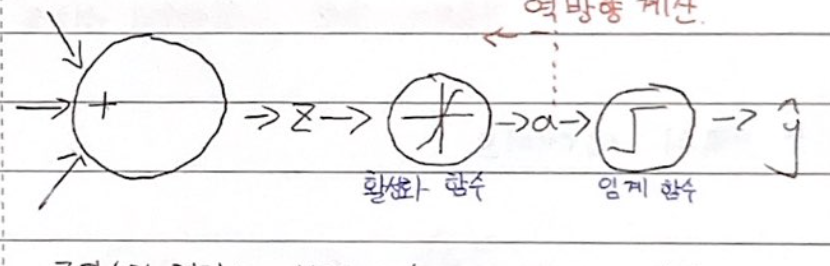 역방향 계산.
+ → z → → a → → ŷ
활성화 함수 임계 함수